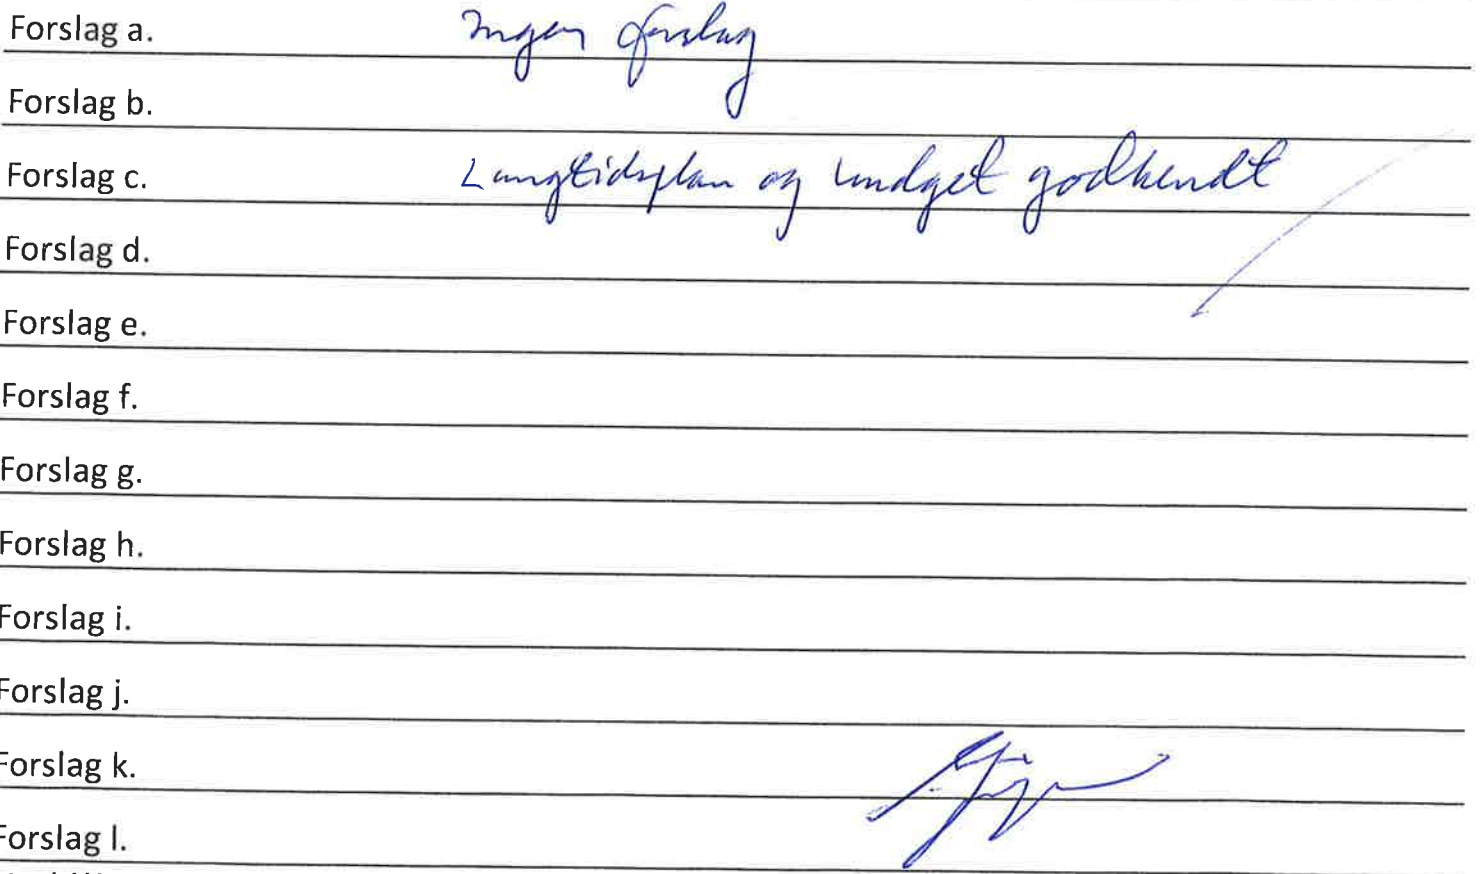 Forslag a. Ingen forslag
Forslag b.
Forslag c. Langtidsplan og budget godkendt
Forslag d.
Forslag e.
Forslag f.
Forslag g.
Forslag h.
Forslag i.
Forslag j.
Forslag k.
Forslag l.